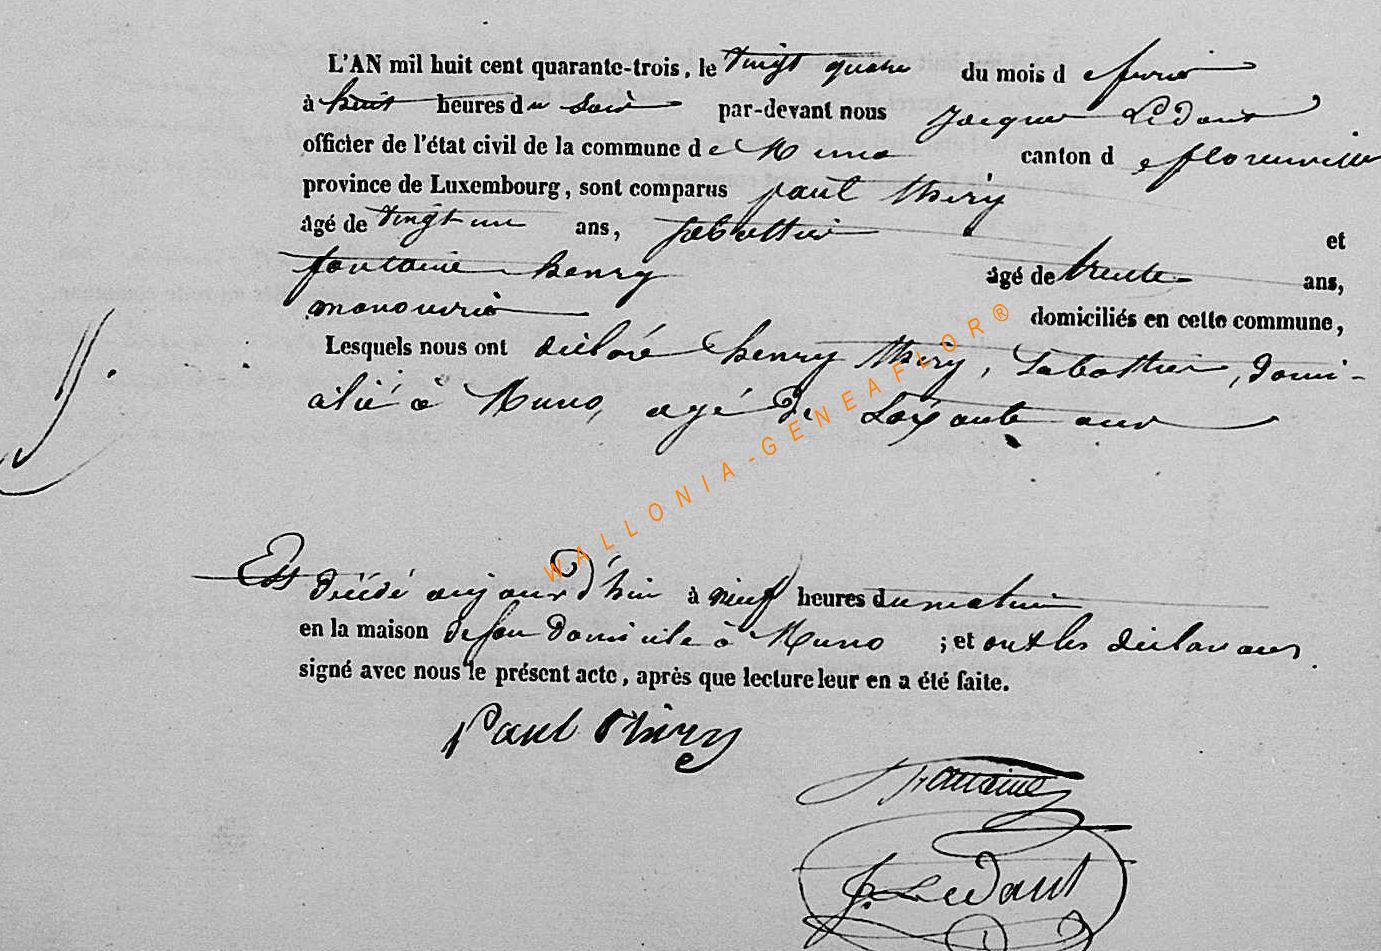 L'AN mil huit cent quarante-trois, le vingt quatre du mois de fevrier
à huit heures du soir par-devant nous Jacques Ledant
officier de l'état civil de la commune de Muno canton de florenville
province de Luxembourg, sont comparus paul thiry
âgé de vingt un ans, sabottier et
fontaine henry âgé de trente ans,
manouvrier domiciliés en cette commune,
Lesquels nous ont déclaré henry thiry, sabottier, domi-
cilié à Muno, agé de soixante ans
Est décédé aujourd'hui à neuf heures du matin
en la maison de son domicile à Muno ; et ont les déclarans
signé avec nous le présent acte, après que lecture leur en a été faite.
Paul Thiry
Fontaine
J. Ledant
WALLONIA-GENEAFLOR®